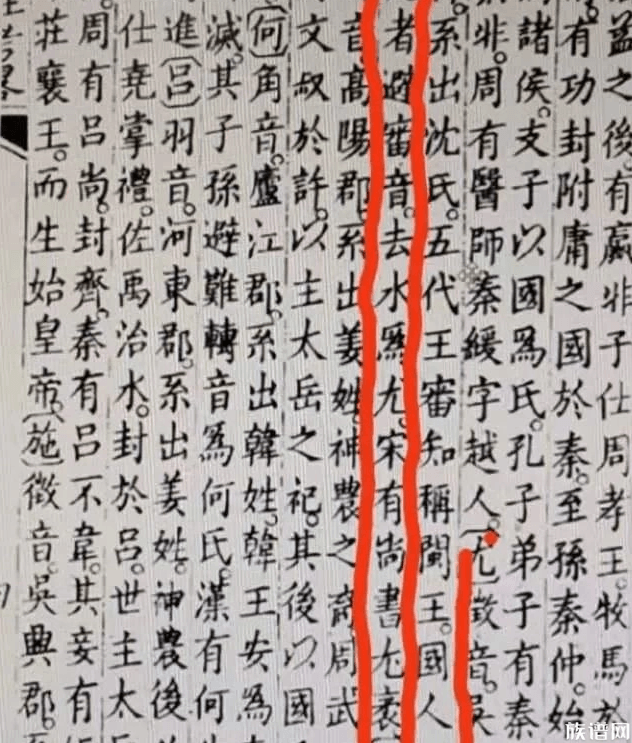 益之後。有嬴非子仕周孝王。牧馬於
有功封附庸之國於秦。至孫秦仲。始
諸侯。支子以國爲氏。孔子弟子有秦
非。周有醫師秦緩字越人。〔尤〕徵音。吳
系出沈氏。五代王審知稱閩王。國人
者避審音。去水爲尤。宋有尚書尤袤
音。高陽郡。系出姜姓。神農之裔。周武
文叔於許。以主太岳之祀。其後以國
〔何〕角音。廬江郡。系出韓姓。韓王安爲
滅。其子孫避難轉音爲何氏。漢有何
進〔呂〕羽音。河東郡。系出姜姓。神農後
仕堯掌禮。佐禹治水。封於呂。世主太
周有呂尚。封齊。秦有呂不韋。其妾有
莊襄王。而生始皇帝。〔施〕徵音。吳興郡。
族谱网